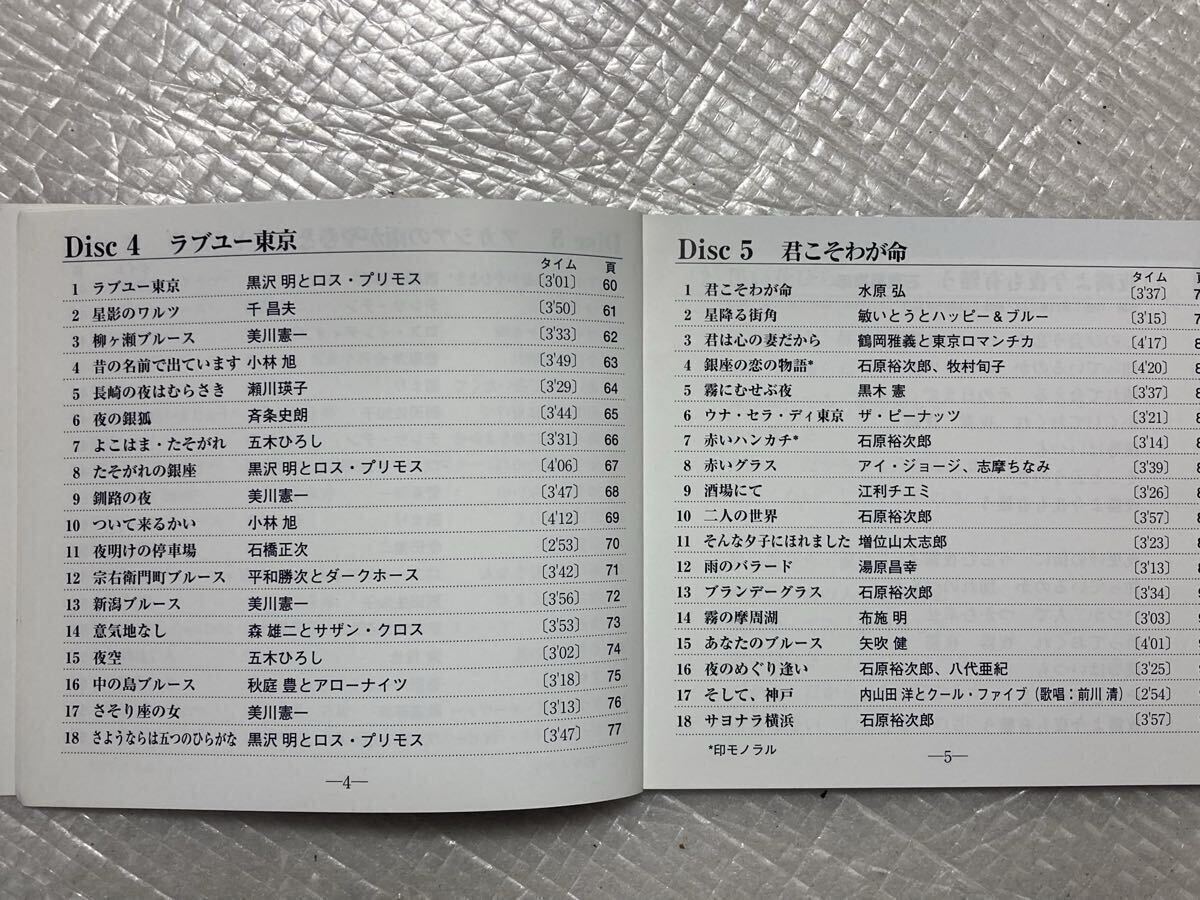 Disc 4 ラブユー東京
タイム 頁
1 ラブユー東京 黒沢 明とロス・プリモス 〔3'01〕 60
2 星影のワルツ 千 昌夫 〔3'50〕 61
3 柳ヶ瀬ブルース 美川憲一 〔3'33〕 62
4 昔の名前で出ています 小林 旭 〔3'49〕 63
5 長崎の夜はむらさき 瀬川瑛子 〔3'29〕 64
6 夜の銀狐 斉条史朗 〔3'44〕 65
7 よこはま・たそがれ 五木ひろし 〔3'31〕 66
8 たそがれの銀座 黒沢 明とロス・プリモス 〔4'06〕 67
9 釧路の夜 美川憲一 〔3'47〕 68
10 ついて来るかい 小林 旭 〔4'12〕 69
11 夜明けの停車場 石橋正次 〔2'53〕 70
12 宗右衛門町ブルース 平和勝次とダークホース 〔3'42〕 71
13 新潟ブルース 美川憲一 〔3'56〕 72
14 意気地なし 森 雄二とサザン・クロス 〔3'53〕 73
15 夜空 五木ひろし 〔3'02〕 74
16 中の島ブルース 秋庭 豊とアローナイツ 〔3'18〕 75
17 さそり座の女 美川憲一 〔3'13〕 76
18 さようならは五つのひらがな 黒沢 明とロス・プリモス 〔3'47〕 77
—4—
Disc 5 君こそわが命
タイム
1 君こそわが命 水原 弘 〔3'37〕
2 星降る街角 敏いとうとハッピー＆ブルー 〔3'15〕
3 君は心の妻だから 鶴岡雅義と東京ロマンチカ 〔4'17〕
4 銀座の恋の物語* 石原裕次郎、牧村旬子 〔4'20〕
5 霧にむせぶ夜 黒木 憲 〔3'37〕
6 ウナ・セラ・ディ東京 ザ・ピーナッツ 〔3'21〕
7 赤いハンカチ* 石原裕次郎 〔3'14〕
8 赤いグラス アイ・ジョージ、志摩ちなみ 〔3'39〕
9 酒場にて 江利チエミ 〔3'26〕
10 二人の世界 石原裕次郎 〔3'57〕
11 そんな夕子にほれました 増位山太志郎 〔3'23〕
12 雨のバラード 湯原昌幸 〔3'13〕
13 ブランデーグラス 石原裕次郎 〔3'34〕
14 霧の摩周湖 布施 明 〔3'03〕
15 あなたのブルース 矢吹 健 〔4'01〕
16 夜のめぐり逢い 石原裕次郎、八代亜紀 〔3'25〕
17 そして、神戸 内山田 洋とクール・ファイブ（歌唱：前川 清） 〔2'54〕
18 サヨナラ横浜 石原裕次郎 〔3'57〕
*印モノラル
—5—